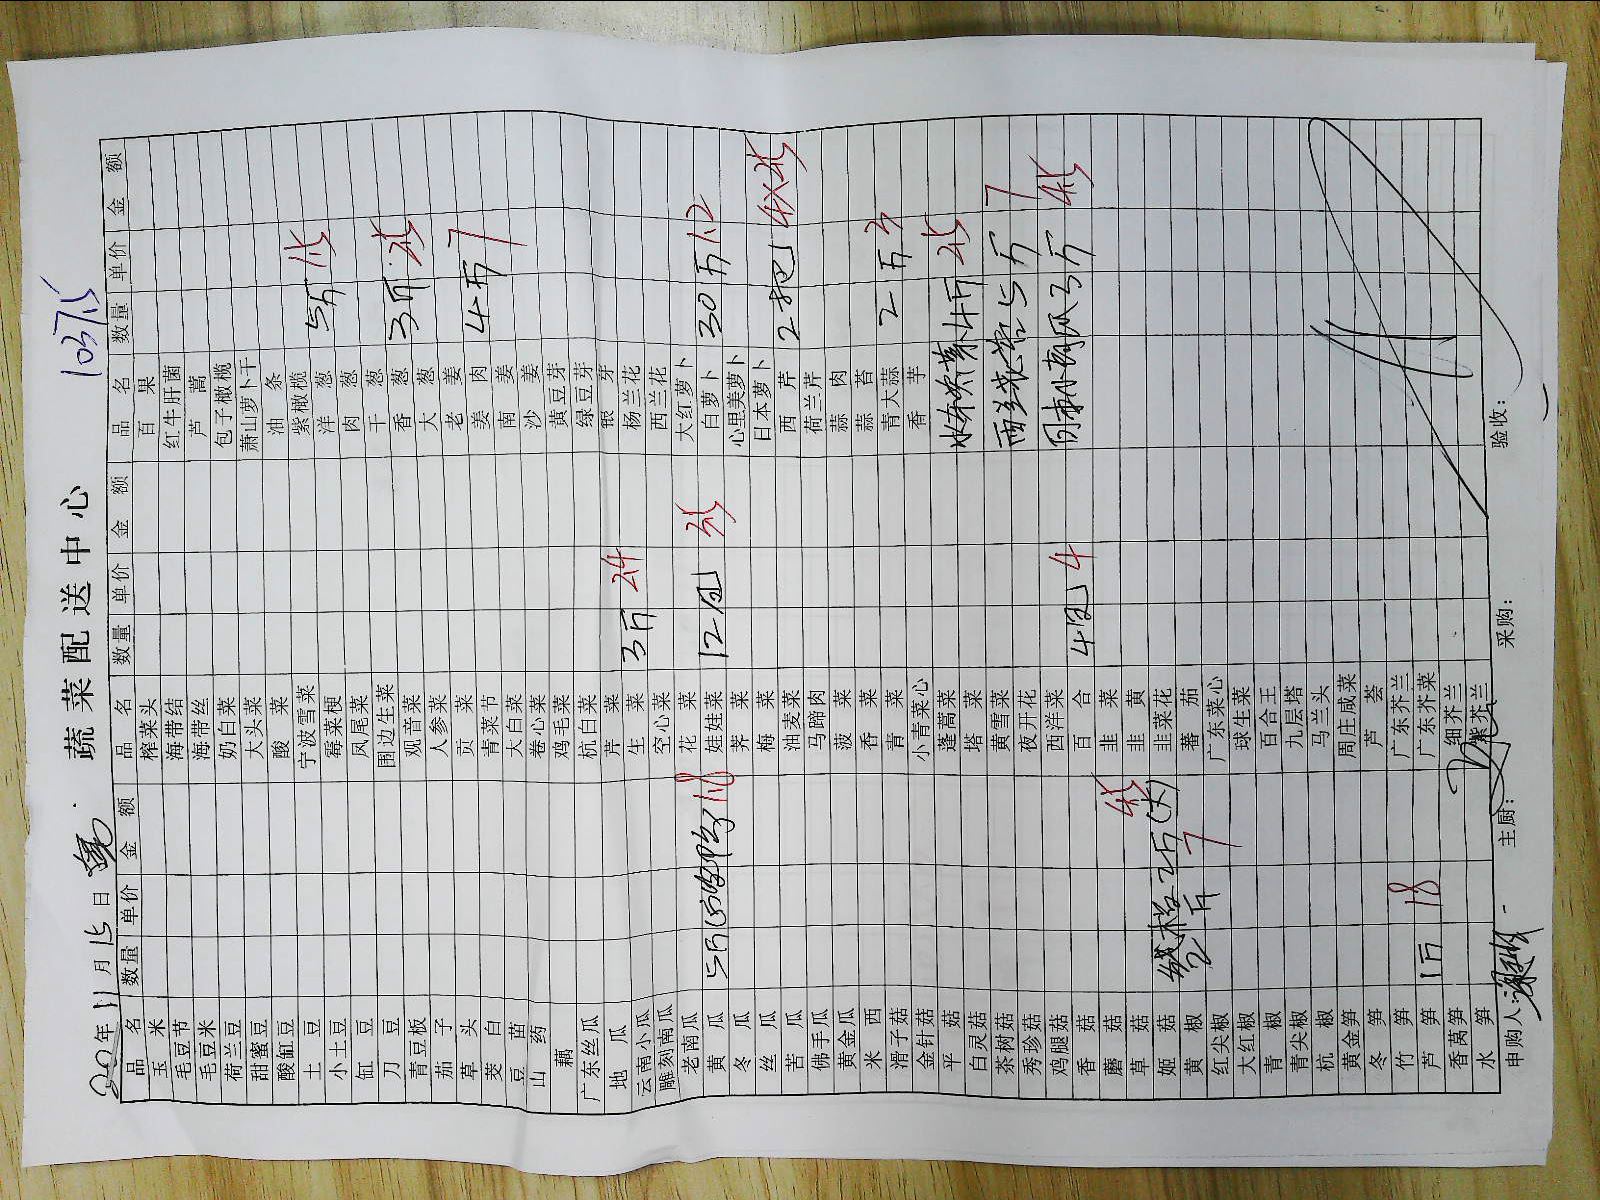 蔬菜配送中心
1037.5
年11月15日
品名 数量 单价 金额 品名 数量 单价 金额 品名 数量 单价 金额
玉米 榨菜头 百果
毛豆节 海带结 红牛肝菌
毛豆米 海带丝 芦蒿
荷兰豆 奶白菜 包子橄榄
甜蜜豆 大头菜 萧山萝卜干
酸豇豆 酸菜 油条
土豆 宁波雪菜 紫橄榄
小土豆 霉菜梗 洋葱 5斤 1.5
豇豆 凤尾菜 肉葱
刀豆 围边生菜 干葱
青豆板 观音菜 香葱 3斤 3.5
茄子 人参菜 大葱
草头 贡菜 老姜
茭白 青菜节 姜肉 4斤 7
豆苗 大白菜 南姜
山药 卷心菜 沙姜
藕 鸡毛菜 黄豆芽
广东丝瓜 杭白菜 绿豆芽
地瓜 芹菜 银芽
云南小瓜 生菜 3斤 2.4 杨兰花
雕刻南瓜 空心菜 西兰花
老南瓜 花菜 大红萝卜
黄瓜 5斤 1.8 娃娃菜 12包 3.5 白萝卜 30斤 1.2
冬瓜 荠菜 心里美萝卜
丝瓜 梅菜 日本萝卜
苦瓜 油麦菜 西芹 2把
佛手瓜 马蹄肉 荷兰芹
黄金瓜 菠菜 蒜肉
米西 香菜 蒜苔
滑子菇 青菜 青大蒜 2斤 3
金针菇 小青菜心 香芋
平菇 蓬蒿菜 4斤 2.5
白灵菇 塔菜
茶树菇 黄雪菜 西兰花苔 5斤 7
秀珍菇 夜开花
鸡腿菇 西洋菜 3斤 4.5
香菇 百合 4包 4
蘑菇 韭菜
草菇 韭黄
姬菇 韭菜花
黄椒 2斤 7 蕃茄
红尖椒 广东菜心
大红椒 球生菜
青椒 百合王
青尖椒 九层塔
杭椒 马兰头
黄金笋 周庄咸菜
冬笋 芦荟
竹笋 广东芥兰
芦笋 1斤 18 广东芥菜
香莴笋 细芥兰
水笋 紫芥兰
申购人: 主厨: 采购: 验收: